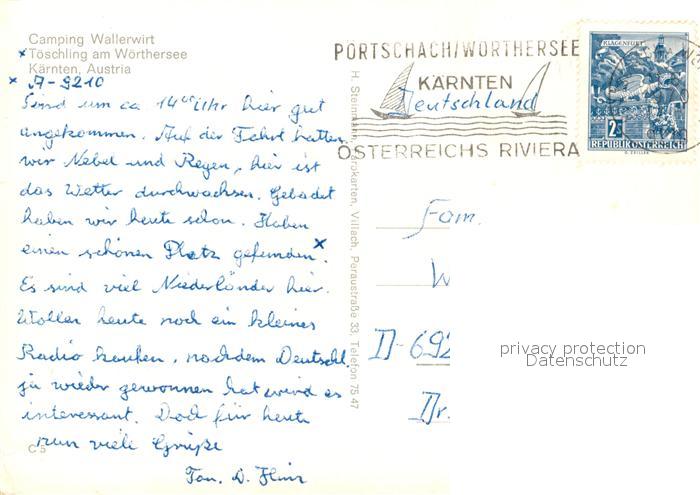 Camping Wallerwirt
Töschling am Wörthersee
Kärnten, Austria
A-9210
Sind um ca 14⁰⁰ Uhr hier gut
angekommen. Auf der Fahrt hatten
wir Nebel und Regen, hier ist
das Wetter durchwachsen. Gebadet
haben wir heute schon. Haben
einen schönen Platz gefunden.
Es sind viel Niederländer hier.
Wollen heute noch ein kleines
Radio kaufen, nachdem Deutschl.
ja wieder gewonnen hat wird es
interessant. Doch für heute
nun viele Grüße
Fam. D.
C 5
H. Steinmann, Villach, Peraustraße 33, Telefon 75 47
PORTSCHACH/WORTHERSEE
KÄRNTEN
Deutschland
ÖSTERREICHS RIVIERA
KLAGENFURT
2S
REPUBLIK ÖSTERREICH
Fam.
W
D-692
privacy protection
Datenschutz